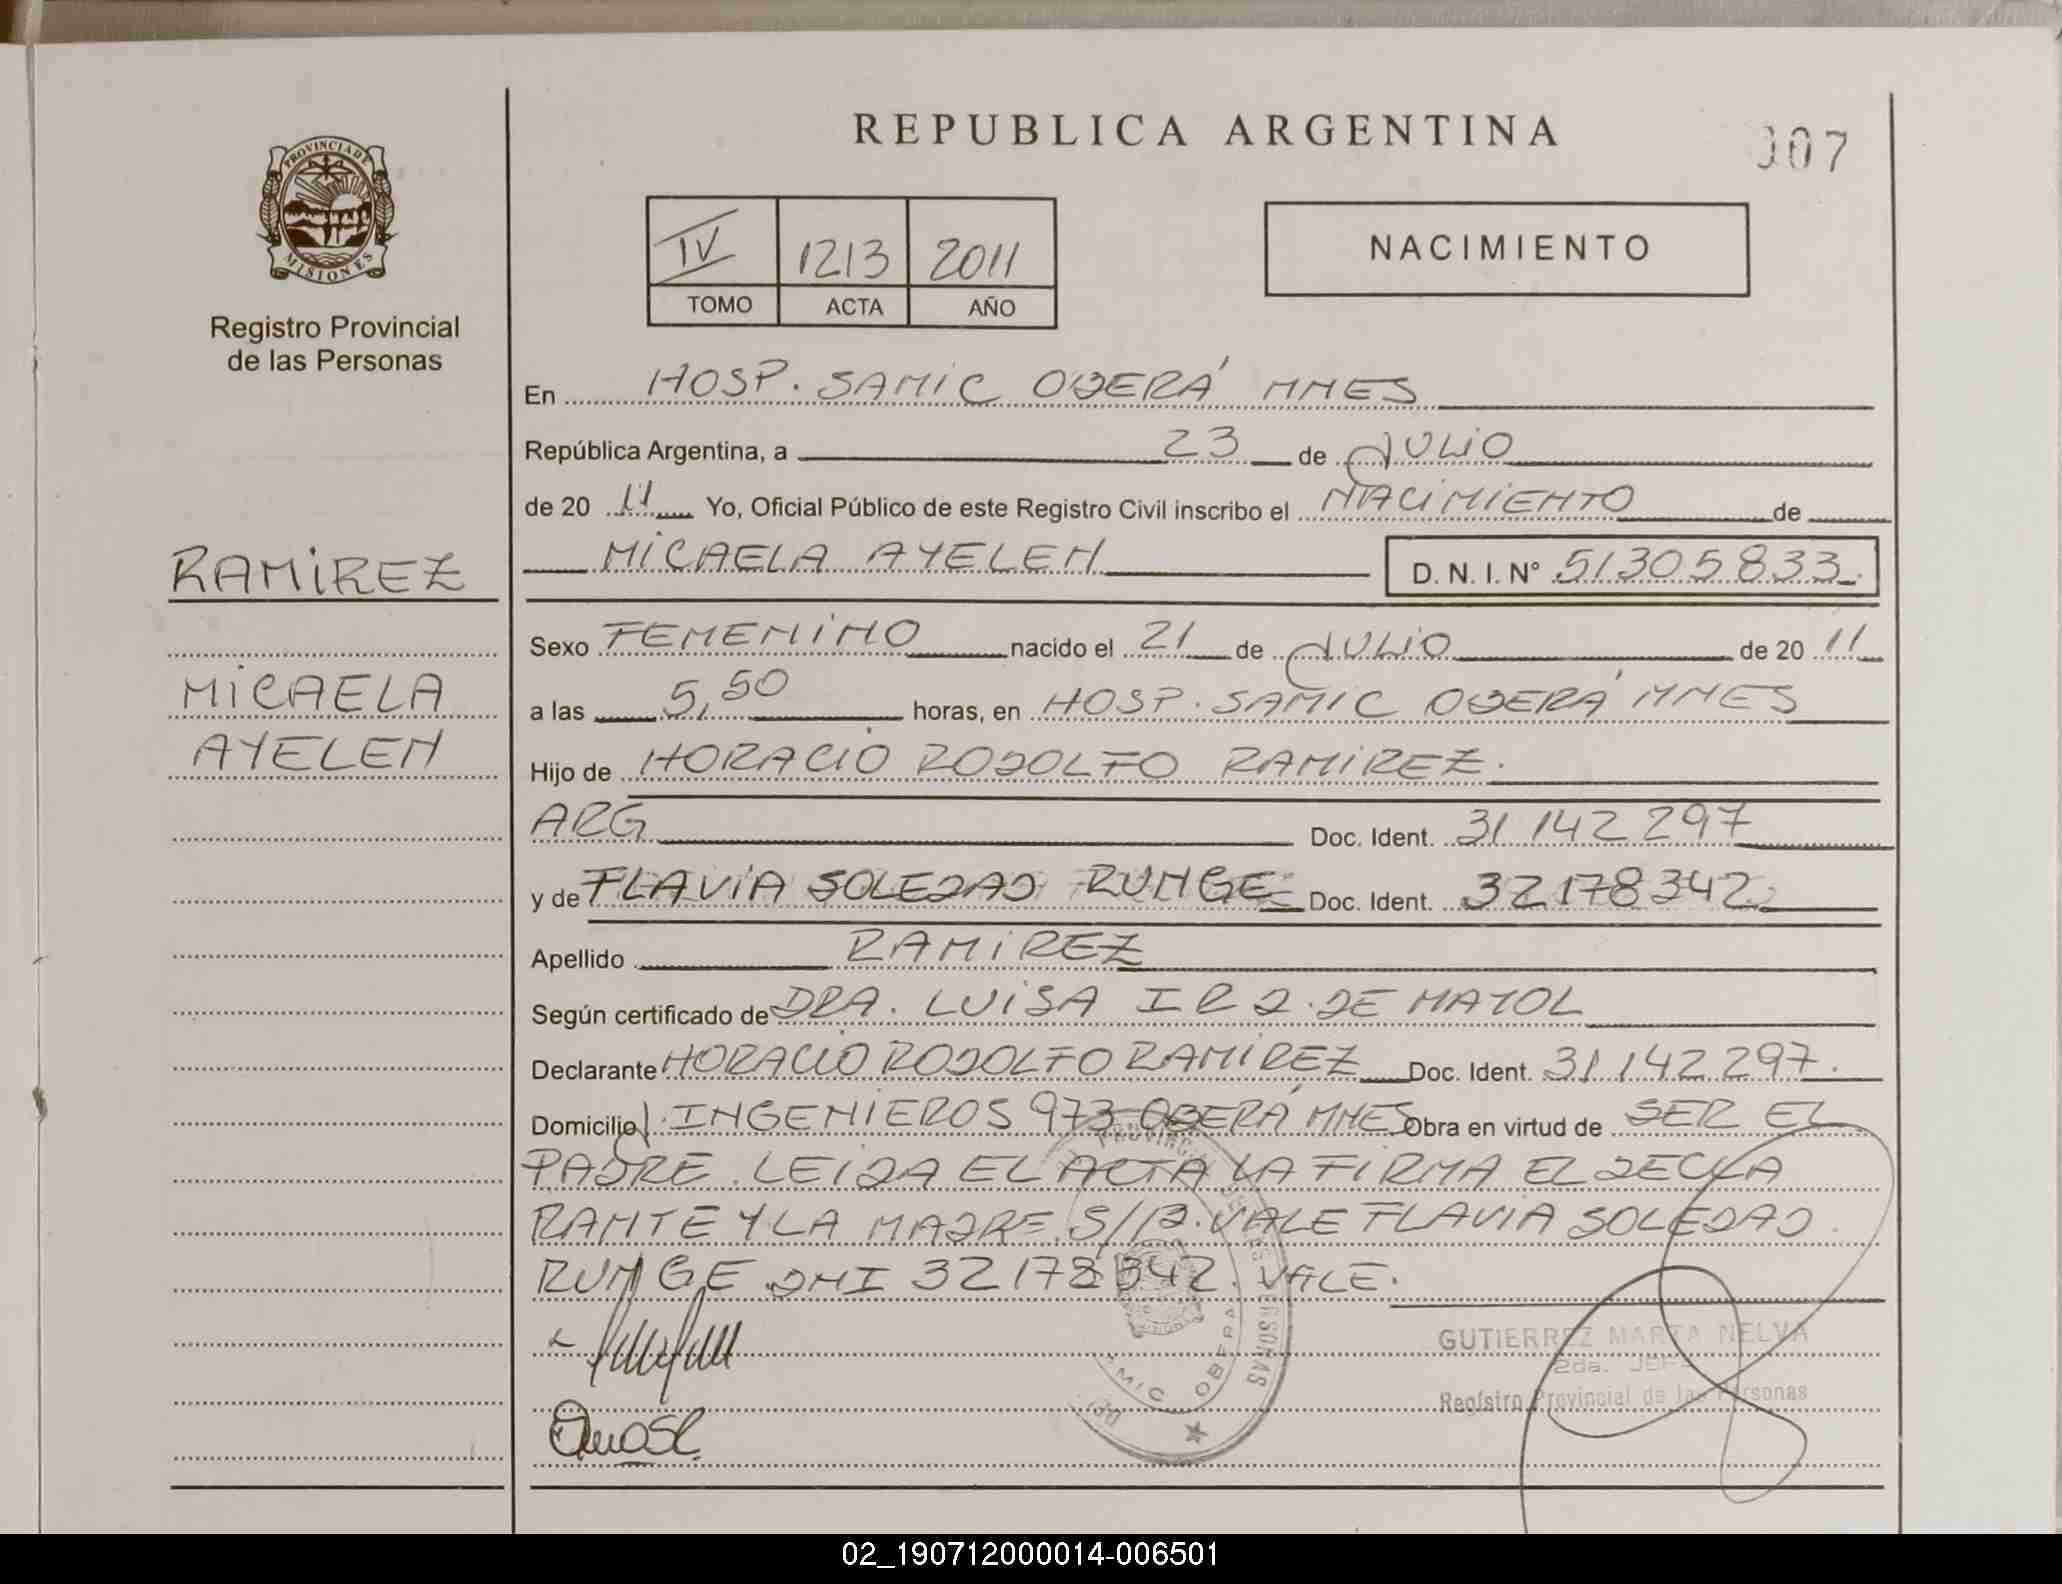 REPUBLICA ARGENTINA
007
PROVINCIA DE
MISIONES
Registro Provincial
de las Personas
IV 1213 2011
TOMO ACTA AÑO
NACIMIENTO
En HOSP. SAMIC OBERÁ MNES
República Argentina, a 23 de JULIO
de 20 11 Yo, Oficial Público de este Registro Civil inscribo el NACIMIENTO de
MICAELA AYELEN D. N. I. Nº 51305833
RAMIREZ
MICAELA
AYELEN
Sexo FEMENINO nacido el 21 de JULIO de 20 11
a las 5,50 horas, en HOSP. SAMIC OBERÁ MNES
Hijo de HORACIO RODOLFO RAMIREZ.
ARG Doc. Ident. 31142297
y de FLAVIA SOLEDAD RUNGE Doc. Ident. 32178342
Apellido RAMIREZ
Según certificado de DRA. LUISA I R D. DE MAYOL
Declarante HORACIO RODOLFO RAMIREZ Doc. Ident. 31142297.
Domicilio J. INGENIEROS 973 OBERÁ MNES Obra en virtud de SER EL
PADRE. LEIDA EL ACTA LA FIRMA EL DECLA
RANTE Y LA MADRE. S/R. VALE FLAVIA SOLEDAD
RUNGE DNI 32178342. VALE.
GUTIERREZ MARTA NELVA
2da. JEFE
Registro Provincial de las Personas
02_190712000014-006501